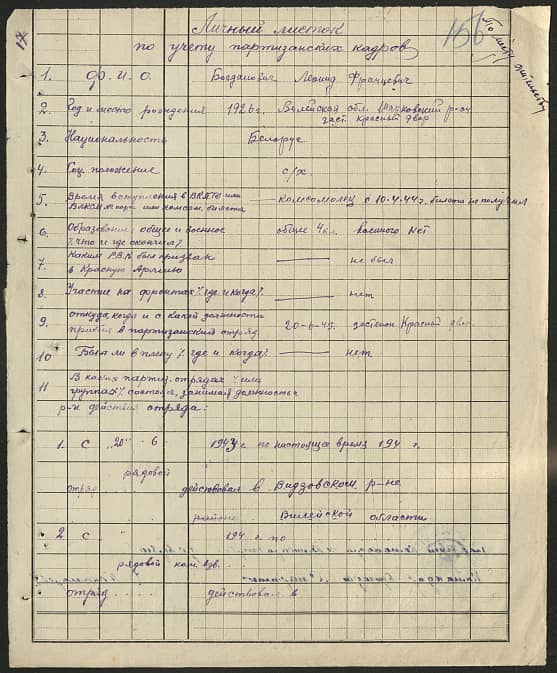 17
156
По месту жительству
Личный листок
по учету партизанских кадров
1. Ф. И. О. Богданович Леонид Францевич
2. Год и место рождения 1926 г. Вилейская обл. Шарковский р-он
заст. Красный двор
3. Национальность Белорус
4. Соц. положение с/х.
5. Время вступления в ВКП(б) или
ВЛКСМ, № парт или комсом. билета комсомолец с 10.4.44 г. билета не получил
6. Образование общее и военное
/что и где окончил/. общее 4 кл. военного нет
7. Каким Р.В.К. был призван
в Красную Армию не был
8. Участие на фронтах /где и когда/. нет
9. откуда, когда и с какой должности
прибыл в партизанский отряд 20-6-43. застенок Красный двор
10 Был ли в плену /. где и когда/ нет
11 В каких партиз. отрядах /или
группах/ состоял, занимая должность
р-н действия отряда:
1. С „20" 6 1943 г. по настоящее время 194 г.
рядовой
отряд действовал в Видзовском р-не
районе Вилейской области
2 С " 194 г. по
рядовой ком. взв.
отряд . . . . действовал в